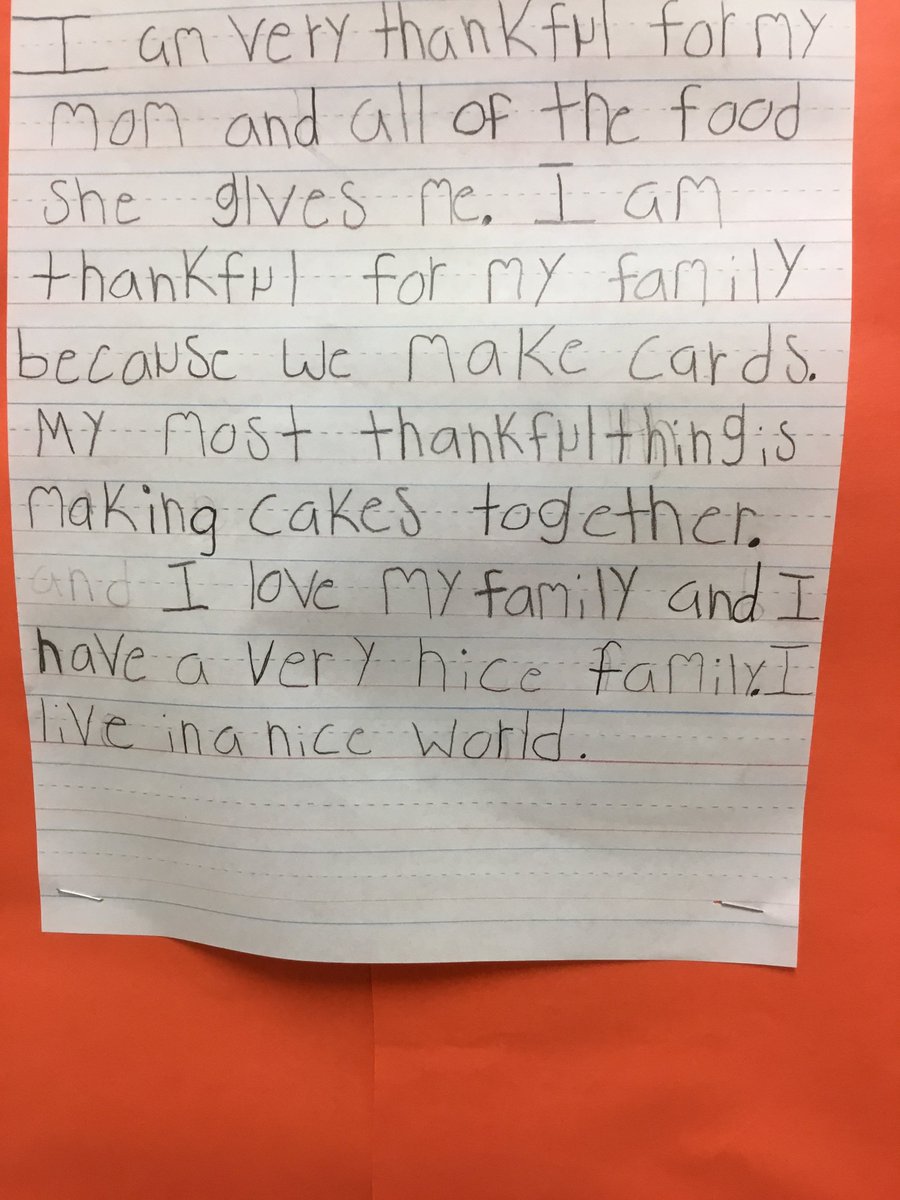 I am very thankful for my
mom and all of the food
she gives me. I am
thankful for my family
because we make cards.
My most thankful thing is
making cakes together.
and I love my family and I
have a very nice family. I
live in a nice world.